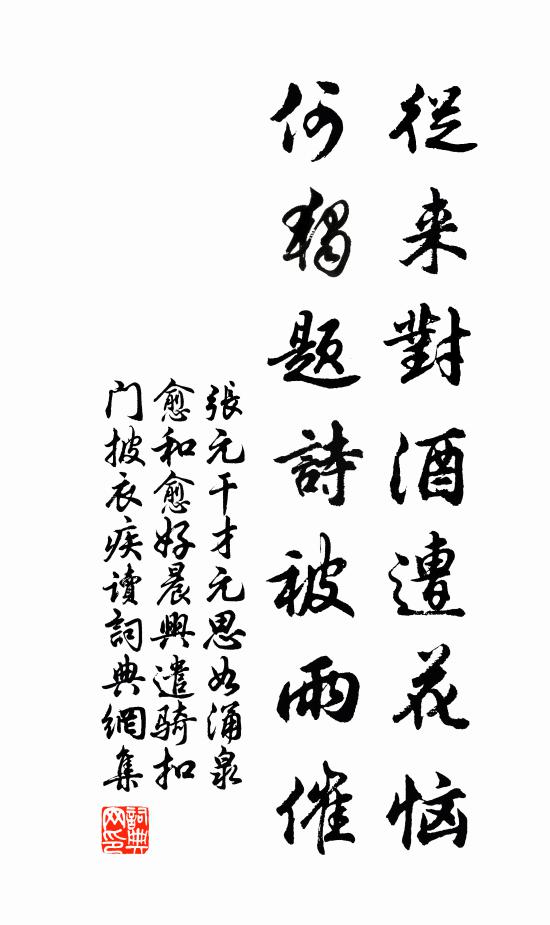 從来對酒遭花恼
何獨題詩被雨催
張元干才元思如涌泉
愈和愈好晨興遣骑扣
门披衣疾读詞典網集
詞典网印